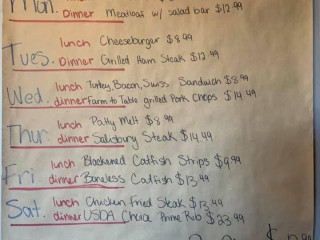 Mon.
Dinner Meatloaf w/ salad bar $12.99
Tues.
lunch Cheeseburger $8.99
Dinner Grilled Ham Steak $12.99
Wed.
lunch Turkey, Bacon, Swiss Sandwich $8.99
dinner Farm to Table grilled Pork Chops $14.49
Thur.
lunch Patty Melt $8.99
dinner Salisbury Steak $14.49
Fri.
lunch Blackened Catfish Strips $9.99
dinner Boneless Catfish $13.99
Sat.
lunch Chicken Fried Steak $13.49
dinner USDA Choice Prime Rib $23.99